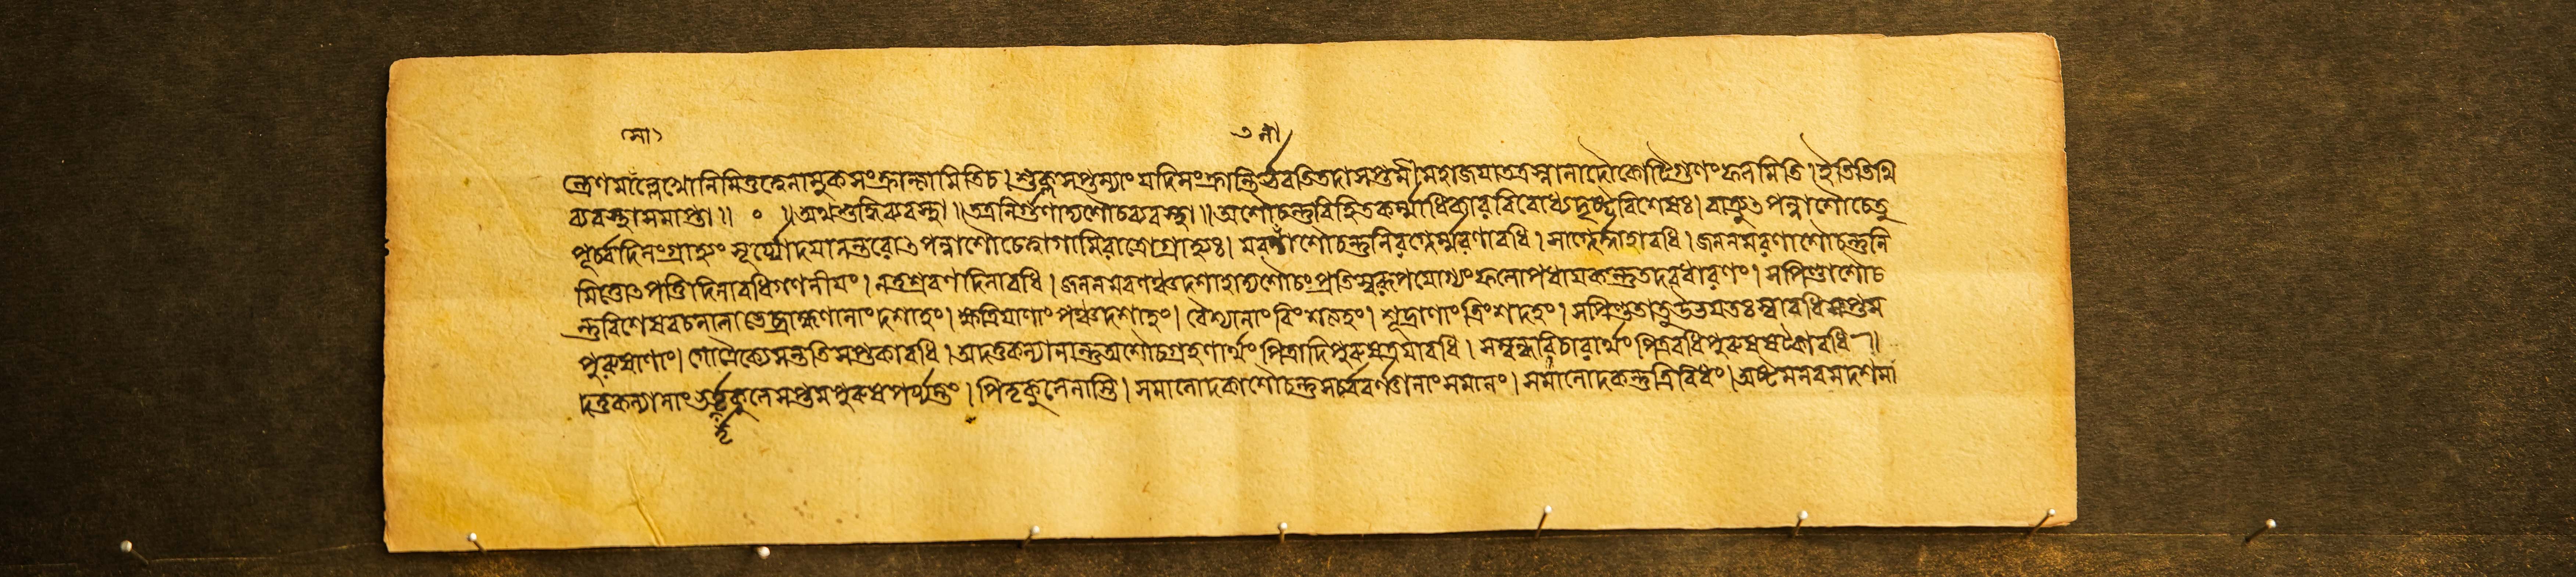 মা ৩ন
ন্ত্রেণ মাল্লেখো নিমিত্তত্বেনামুকসংক্রান্ত্যামিতি চ। শুক্লসপ্তম্যাং যদি সংক্রান্তির্ভবতি তদা সপ্তমী মহাজয়া তত্র স্নানাদৌ কোটিগুণং ফলমিতি। ইতি তিথি
ব্যবস্থা সমাপ্তা॥ ॰ ॥ অথ শুদ্ধিব্যবস্থা॥ তত্র নির্গুণাদ্যশৌচব্যবস্থা॥ অশৌচন্তু বিহিতকর্ম্মাধিকারবিরোধ্যদৃষ্টবিশেষঃ। রাত্রুৎপন্নাশৌচে তু
পূর্ব্বদিনং গ্রাহ্যং সূর্য্যোদয়ানন্তরোৎপন্নাশৌচে ত্বাগামিরাত্রো গ্রাহ্যঃ। মরণাশৌচন্তু নিরগ্নের্ম্মরণাবধি। সাগ্নের্দ্দাহাবধি। জননমরণাশৌচন্তু নি
মিত্তোৎপত্তিদিনাবধি গণনীয়ং। নতু শ্রবণদিনাবধি। জননমরণঞ্চ দশাহাদ্যশৌচং প্রতি স্বরূপযোগ্যং ফলোপধায়কন্তু তদবধারণং। সপিণ্ডাশৌচ
ন্তু বিশেষবচনাভাবে ব্রাহ্মণানাং দশাহং। ক্ষত্রিয়াণাং পঞ্চদশাহং। বৈশ্যানাং বিংশত্যহং। শূদ্রাণাং ত্রিংশদহং। সপিণ্ডতা তু উভয়তঃ স্বাবধি সপ্তম
পুরুষাণাং। গোত্রৈক্যে সন্ততিসপ্তকাবধি। অদত্তকন্যানান্তু অশৌচগ্রহণার্থং পিত্রাদিপুরুষত্রয়াবধি। সম্বন্ধবিচারার্থং পিত্রবধি পুরুষষট্কাবধি॥
দত্তকন্যানাং ভর্ত্তৃকুলে সপ্তমপুরুষপর্য্যন্তং। পিতৃকুলে নাস্তি। সমানোদকাশৌচন্তু সর্ব্ববর্ণানাং সমানং। সমানোদকন্তু ত্রিবিধং। অষ্টমনবমদশমা
র্ত্তৃ